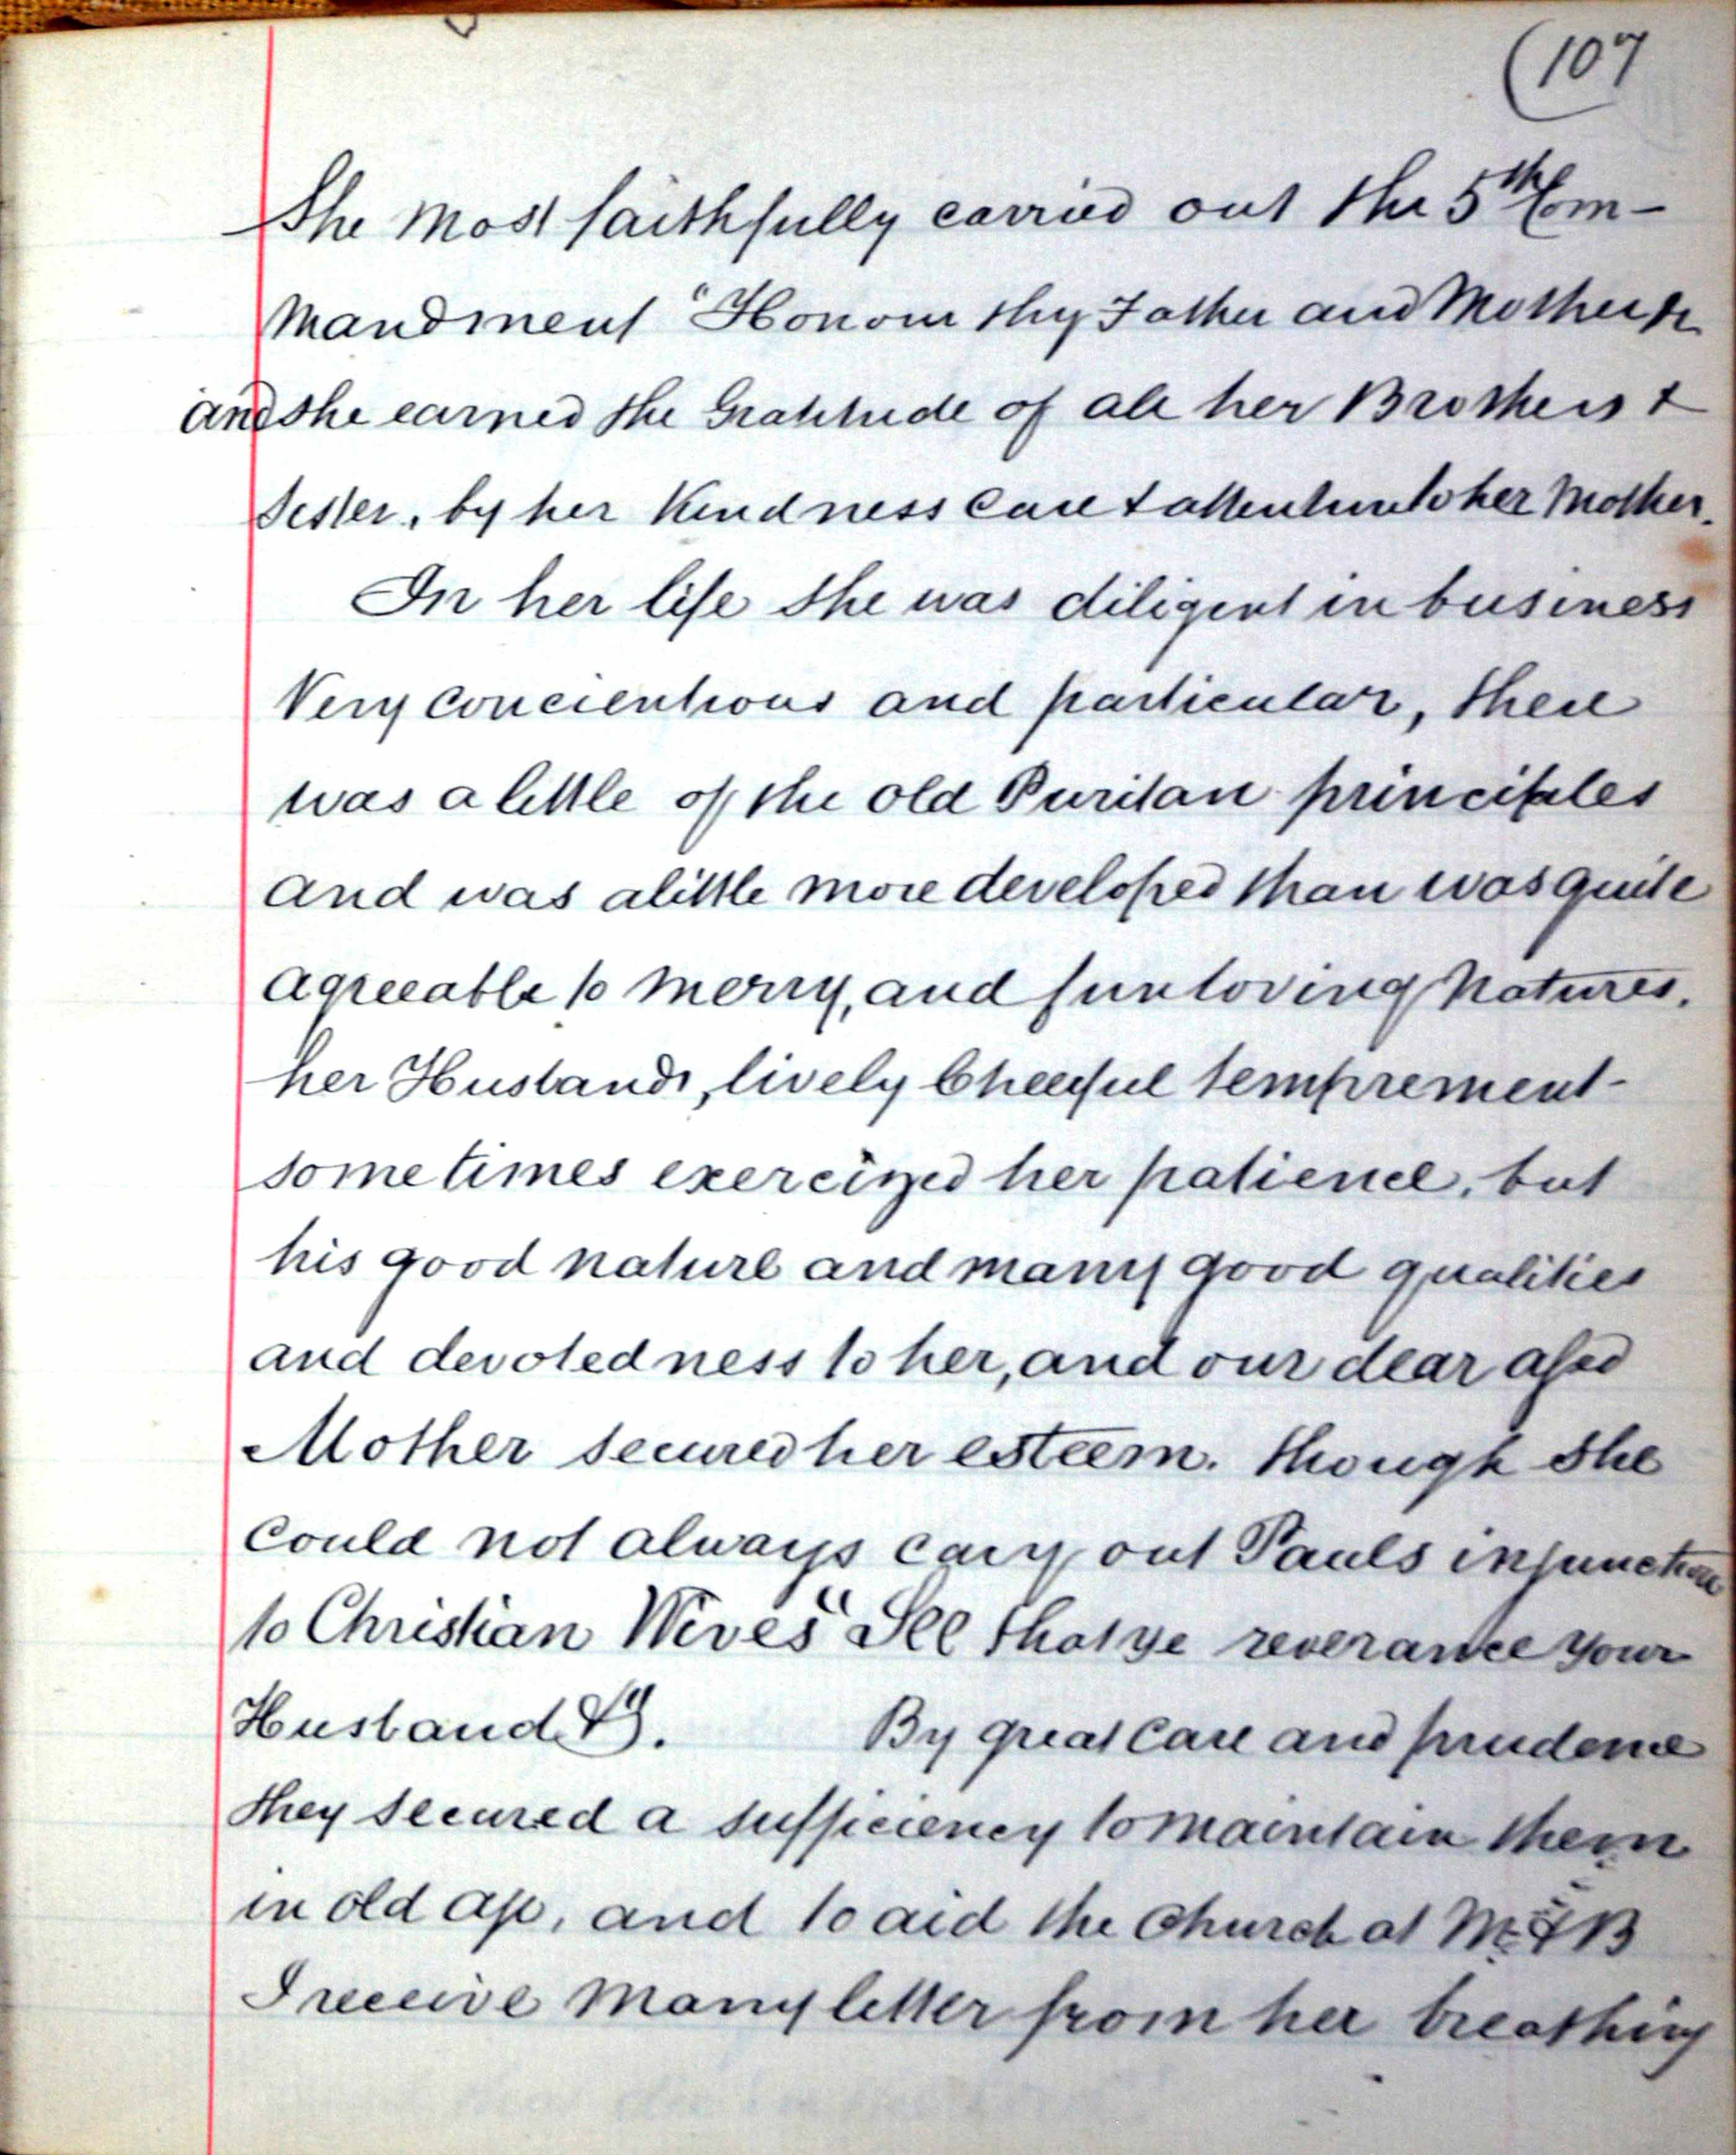 (107
She most faithfully carried out the 5th Com-
mandment "Honour thy Father and Mother &c
and she earned the Gratitude of all her Brothers &
Sister, by her Kindness Care & attention to her Mother.
In her life she was diligent in business
Very concientious and particular, there
was a little of the old Puritan principles
and was a little more developed than was quite
agreeable to merry, and fun loving natures.
her Husbands, lively Cheerful temprement-
some times exercized her patience, but
his good nature and many good qualities
and devotedness to her, and our dear aged
Mother secured her esteem. though She
could not always cary out Pauls injunction
to Christian Wives "See that ye reverance your
Husband &". By great Care and prudence
they secured a sufficiency to maintain them
in old age, and to aid the Church at M & B
I receive many letter from her breathing